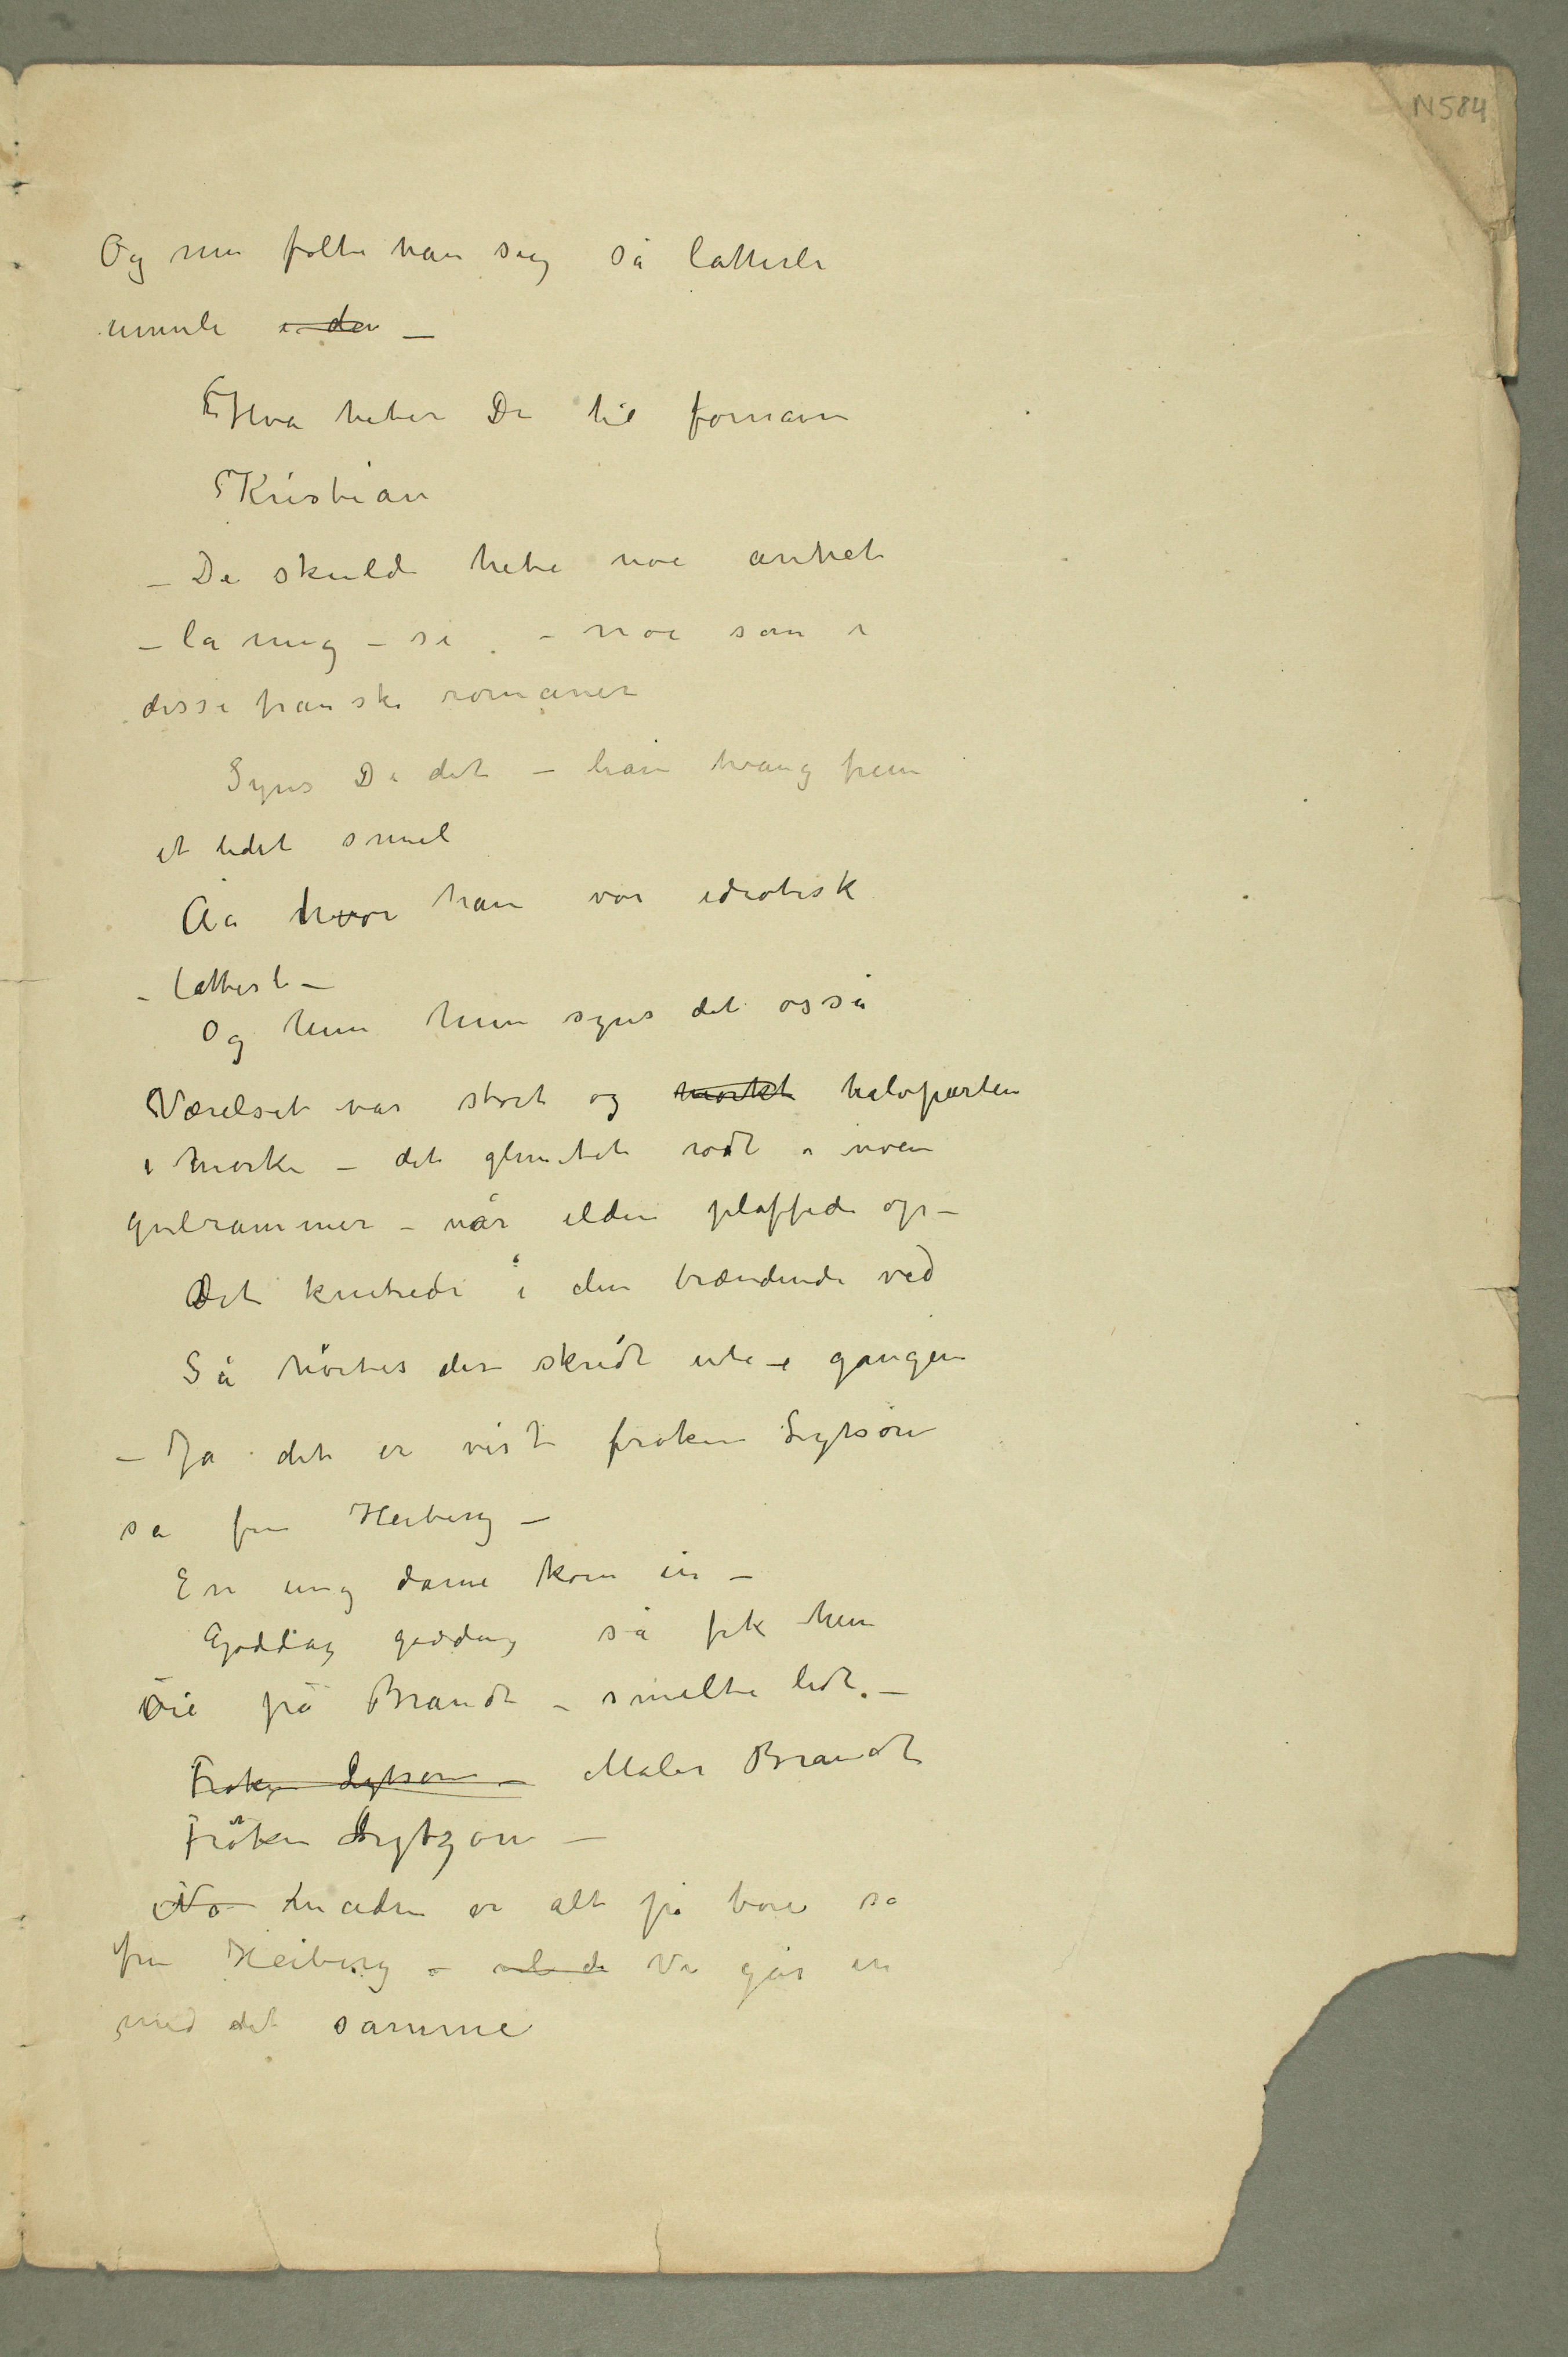 N584
Og nu følte han seg så latterli
umuli i den –
Hva heter De til fornavn
Kristian
– De skulde hete noe andet
– la mig – se – noe som i
disse franske romaner
Syns De det – han tvang frem
et lidet smil
Aa hvor han var idiotisk
– latterl –
Og hun hun syns det osså
Værelset var stort og mørkt halvparten
i mørke – det glimtet rødt i noen
gulrammer – når ilden plaffede op –
Det knitrede i den brændende ved
Så hørtes der skridt ute i gangen
– Ja det er vist frøken Lytsön
sa fru Heiberg –
En ung dame kom in –
Goddag goddag så fik hun
öie på Brandt – smilte lidt. –
Frøken Lytson – Maler Brandt
Frøken Lytzon –
No maden er alt på bore sa
fru Heiberg – Vi går in
med det samme